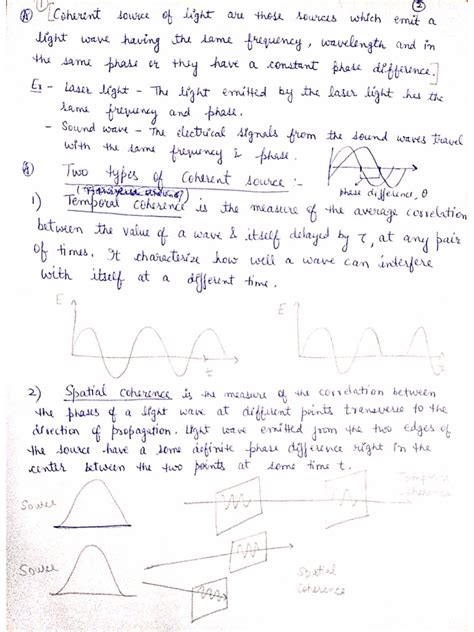 ①
②
Ⓐ [Coherent source of light are those sources which emit a
light wave having the same frequency, wavelength and in
the same phase or they have a constant phase difference.]
Ex - Laser light - The light emitted by the laser light has the
same frequency and phase.
- Sound wave - The electrical signals from the sound waves travel
with the same frequency & phase.
phase difference, θ
Two types of Coherent source :-
1) Temporal coherence is the measure of the average correlation
between the value of a wave & itself delayed by τ, at any pair
of times. It charecterize how well a wave can interfere
with itself at a different time.
E
t
E
t
2) Spatial coherence is the measure of the correlation between
the phases of a light wave at different points transverse to the
direction of propagation. Light wave emitted from the two edges of
the source have a some definite phase difference right in the
center between the two points at some time t.
Source
coherence
Source
Spatial
Coherence